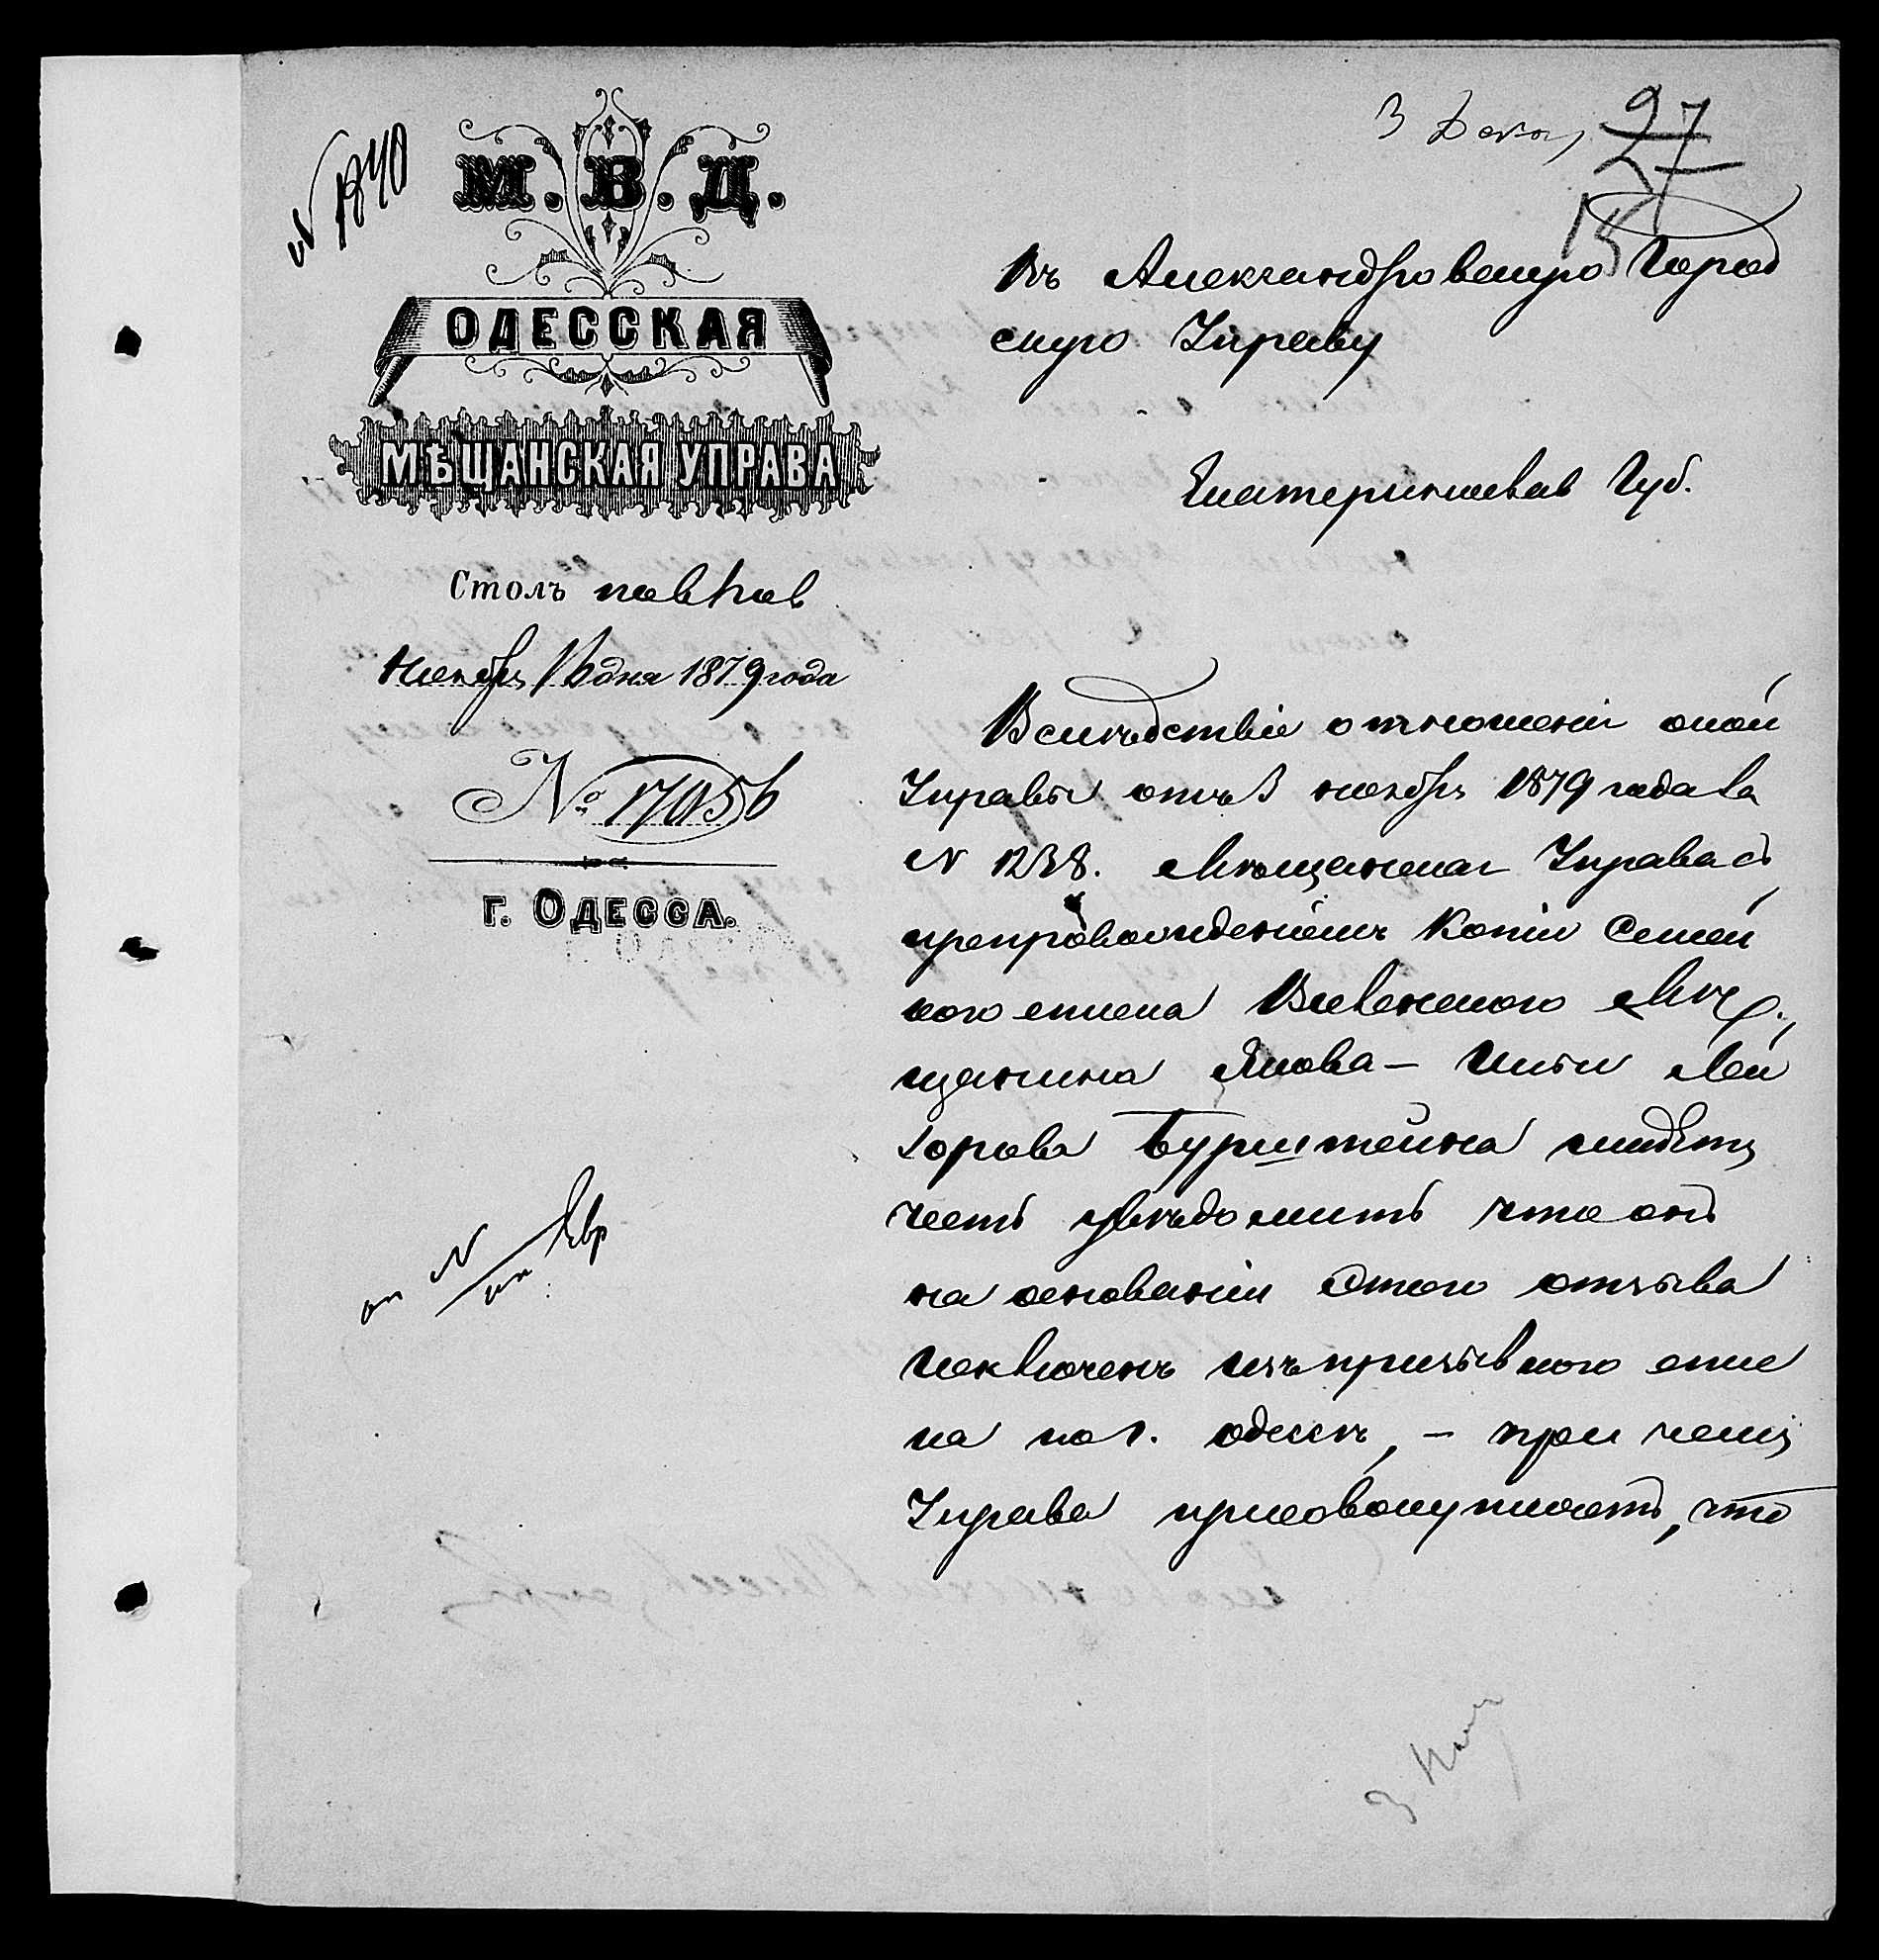 № 1840
М.В.Д.
ОДЕССКАЯ
МѢЩАНСКАЯ УПРАВА
Столъ
Ноября 16 дня 1879 года
№ 17056
г. ОДЕССА.
3 Дека
27
27
Въ Александровскую Город
скую Управу
Екатеринослав Губ.
Вслѣдствіе отношенія оной
Управы отъ 3 ноября 1879 года за
N 1238. Мѣщанская Управа съ
препровожденіемъ Копіи Семей
наго списка Мѣ
щанина Якова – Ицки Лей
зорова Бурштейна имѣетъ
честь увѣдомить что онъ
на основаніи этого отзыва
исключенъ изъ призывнаго спис
ка по г. Одессѣ, – при чемъ
Управа присовокупляетъ, что